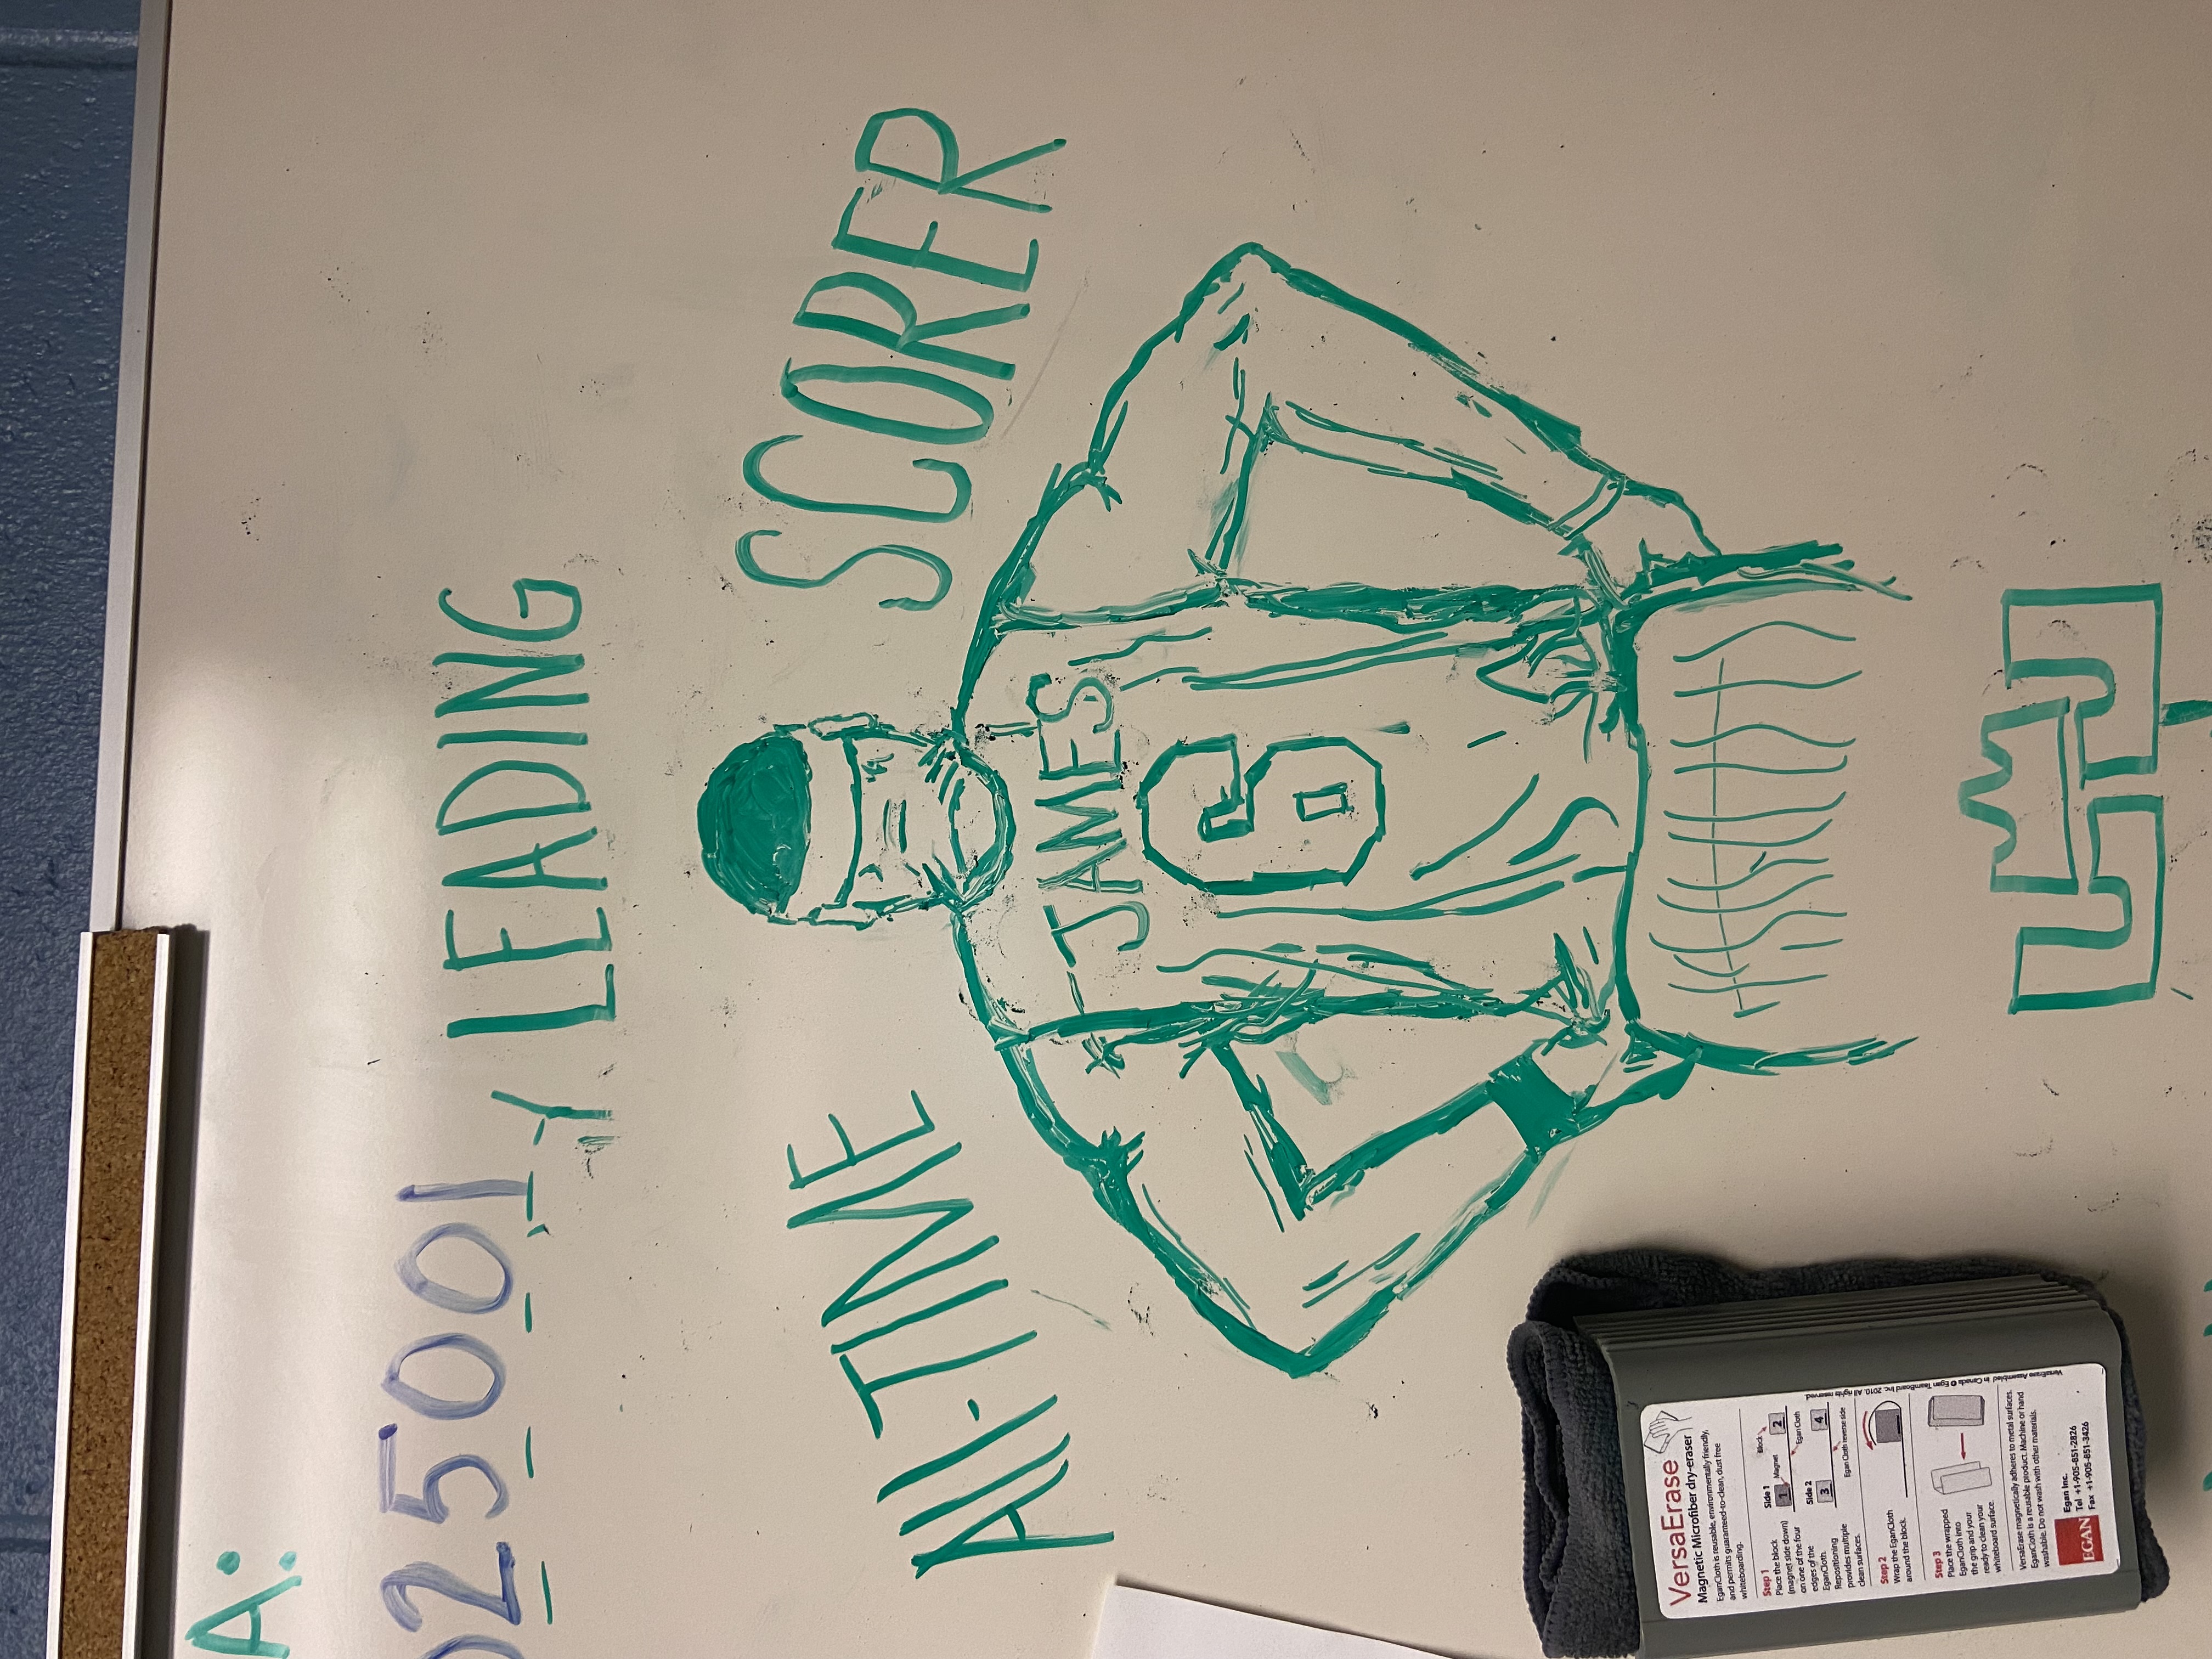 A:
25001
Y LEADING
All-TIME
SCORER
JAMES
6
VersaErase
Magnetic Microfiber dry-eraser
EganCloth is reusable, environmentally friendly,
and permits guaranteed-to-clean, dust free
whiteboarding.
Step 1
Place the block
(magnet side down)
on one of the four
edges of the
EganCloth.
Repositioning
provides multiple
clean surfaces.
Side 1
Block
1
Magnet
2
Egan Cloth
Side 2
3
4
Egan Cloth reverse side
Step 2
Wrap the EganCloth
around the block.
Step 3
Place the wrapped
EganCloth into
the grip and your
ready to clean your
whiteboard surface.
VersaErase magnetically adheres to metal surfaces.
EganCloth is a reusable product. Machine or hand
washable. Do not wash with other materials.
EGAN
Egan Inc.
Tel +1-905-851-2826
Fax +1-905-851-3426
VersaErase Assembled in Canada © Egan TeamBoard Inc. 2010. All rights reserved.